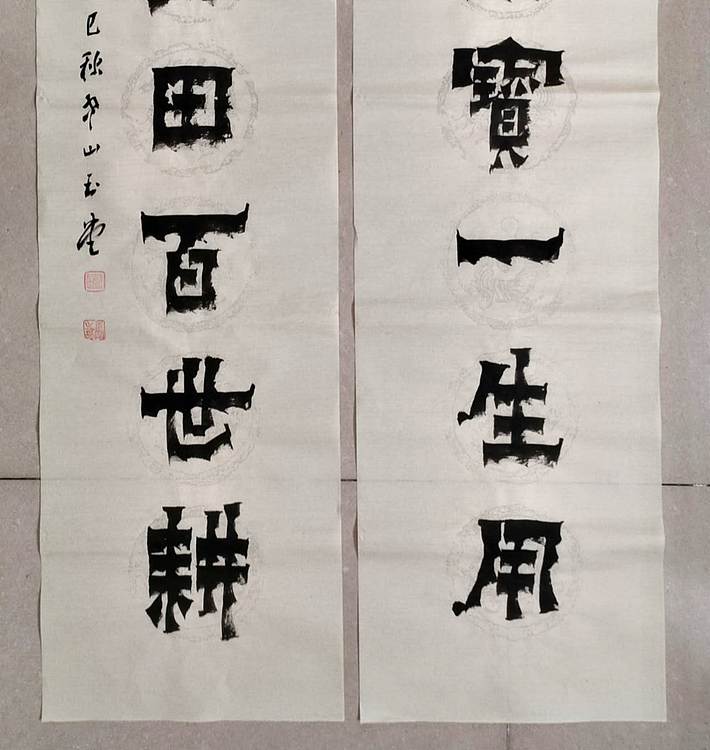 寶一生用
田百世耕
巳秋
山玉堂